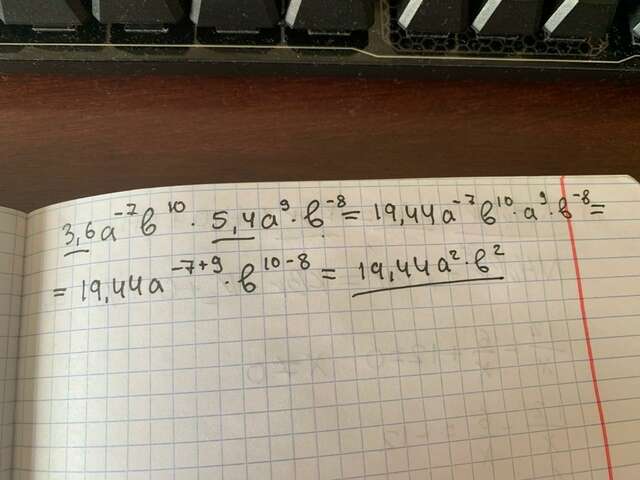 3,6a⁻⁷b¹⁰ · 5,4a⁹ · b⁻⁸ = 19,44a⁻⁷b¹⁰ · a⁹ · b⁻⁸ =
= 19,44a⁻⁷⁺⁹ · b¹⁰⁻⁸ = 19,44a² · b²